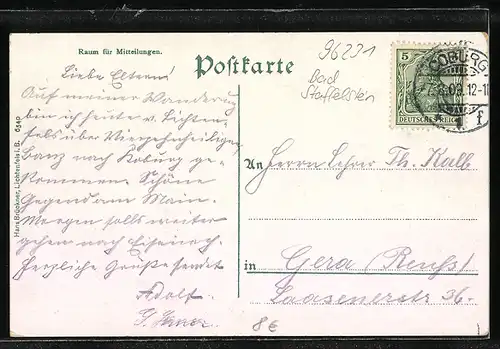 Raum für Mitteilungen.
Postkarte
96231
Bad
Staffelstein
5
DEUTSCHES REICH
COBURG
12-1
f
Liebe Eltern!
Auf meiner Wanderung
bin ich heute v. Lichten-
fels über Vierzehnheiligen
Banz nach Koburg ge-
kommen. Schöne
Gegend am Main.
Morgen solls weiter
gehen nach Eisenach.
Herzliche Grüße sendet
Adolf.
An Herrn Lehrer Th. Kalb
in Gera (Reuß)
Laasenerstr 36.
8€
Hans Brückner, Lichtenfels i. B. 6540